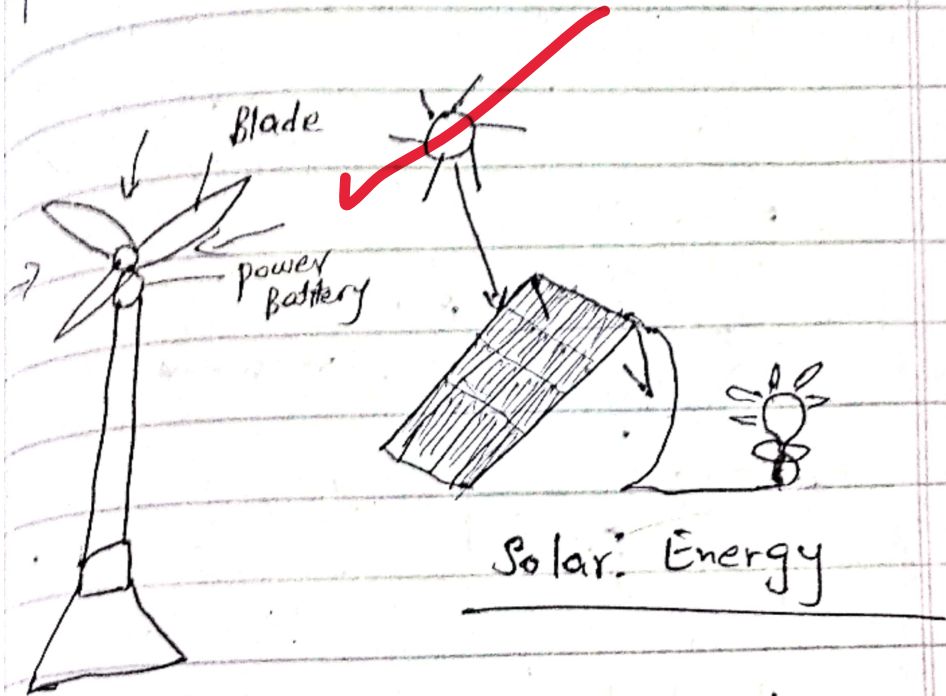 Blade
power
Battery
Solar: Energy